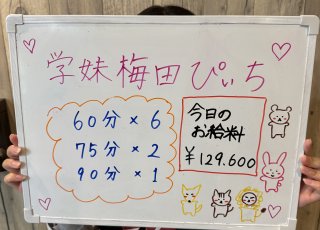 学妹梅田ぴぃち
60分 × 6
75分 × 2
90分 × 1
今日の
お給料
¥129.600